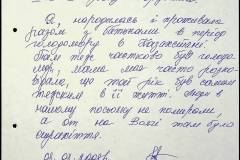 Я, народилась і проживала
разом з батьками в період
голодомору в Казахстані.
Там теж частково був голодо
мор, мама моя часто розпо
відала, що цей рік був самим
тяжким в її житті. Люди в
нашому посьолку не помирали
а от на Волзі там було